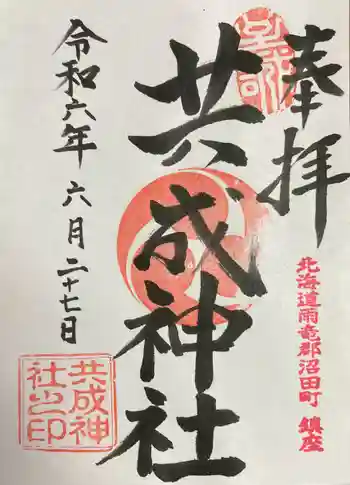 奉拝
北海道雨竜郡沼田町 鎮座
共成神社
令和六年 六月二十七日
共成神
社之印